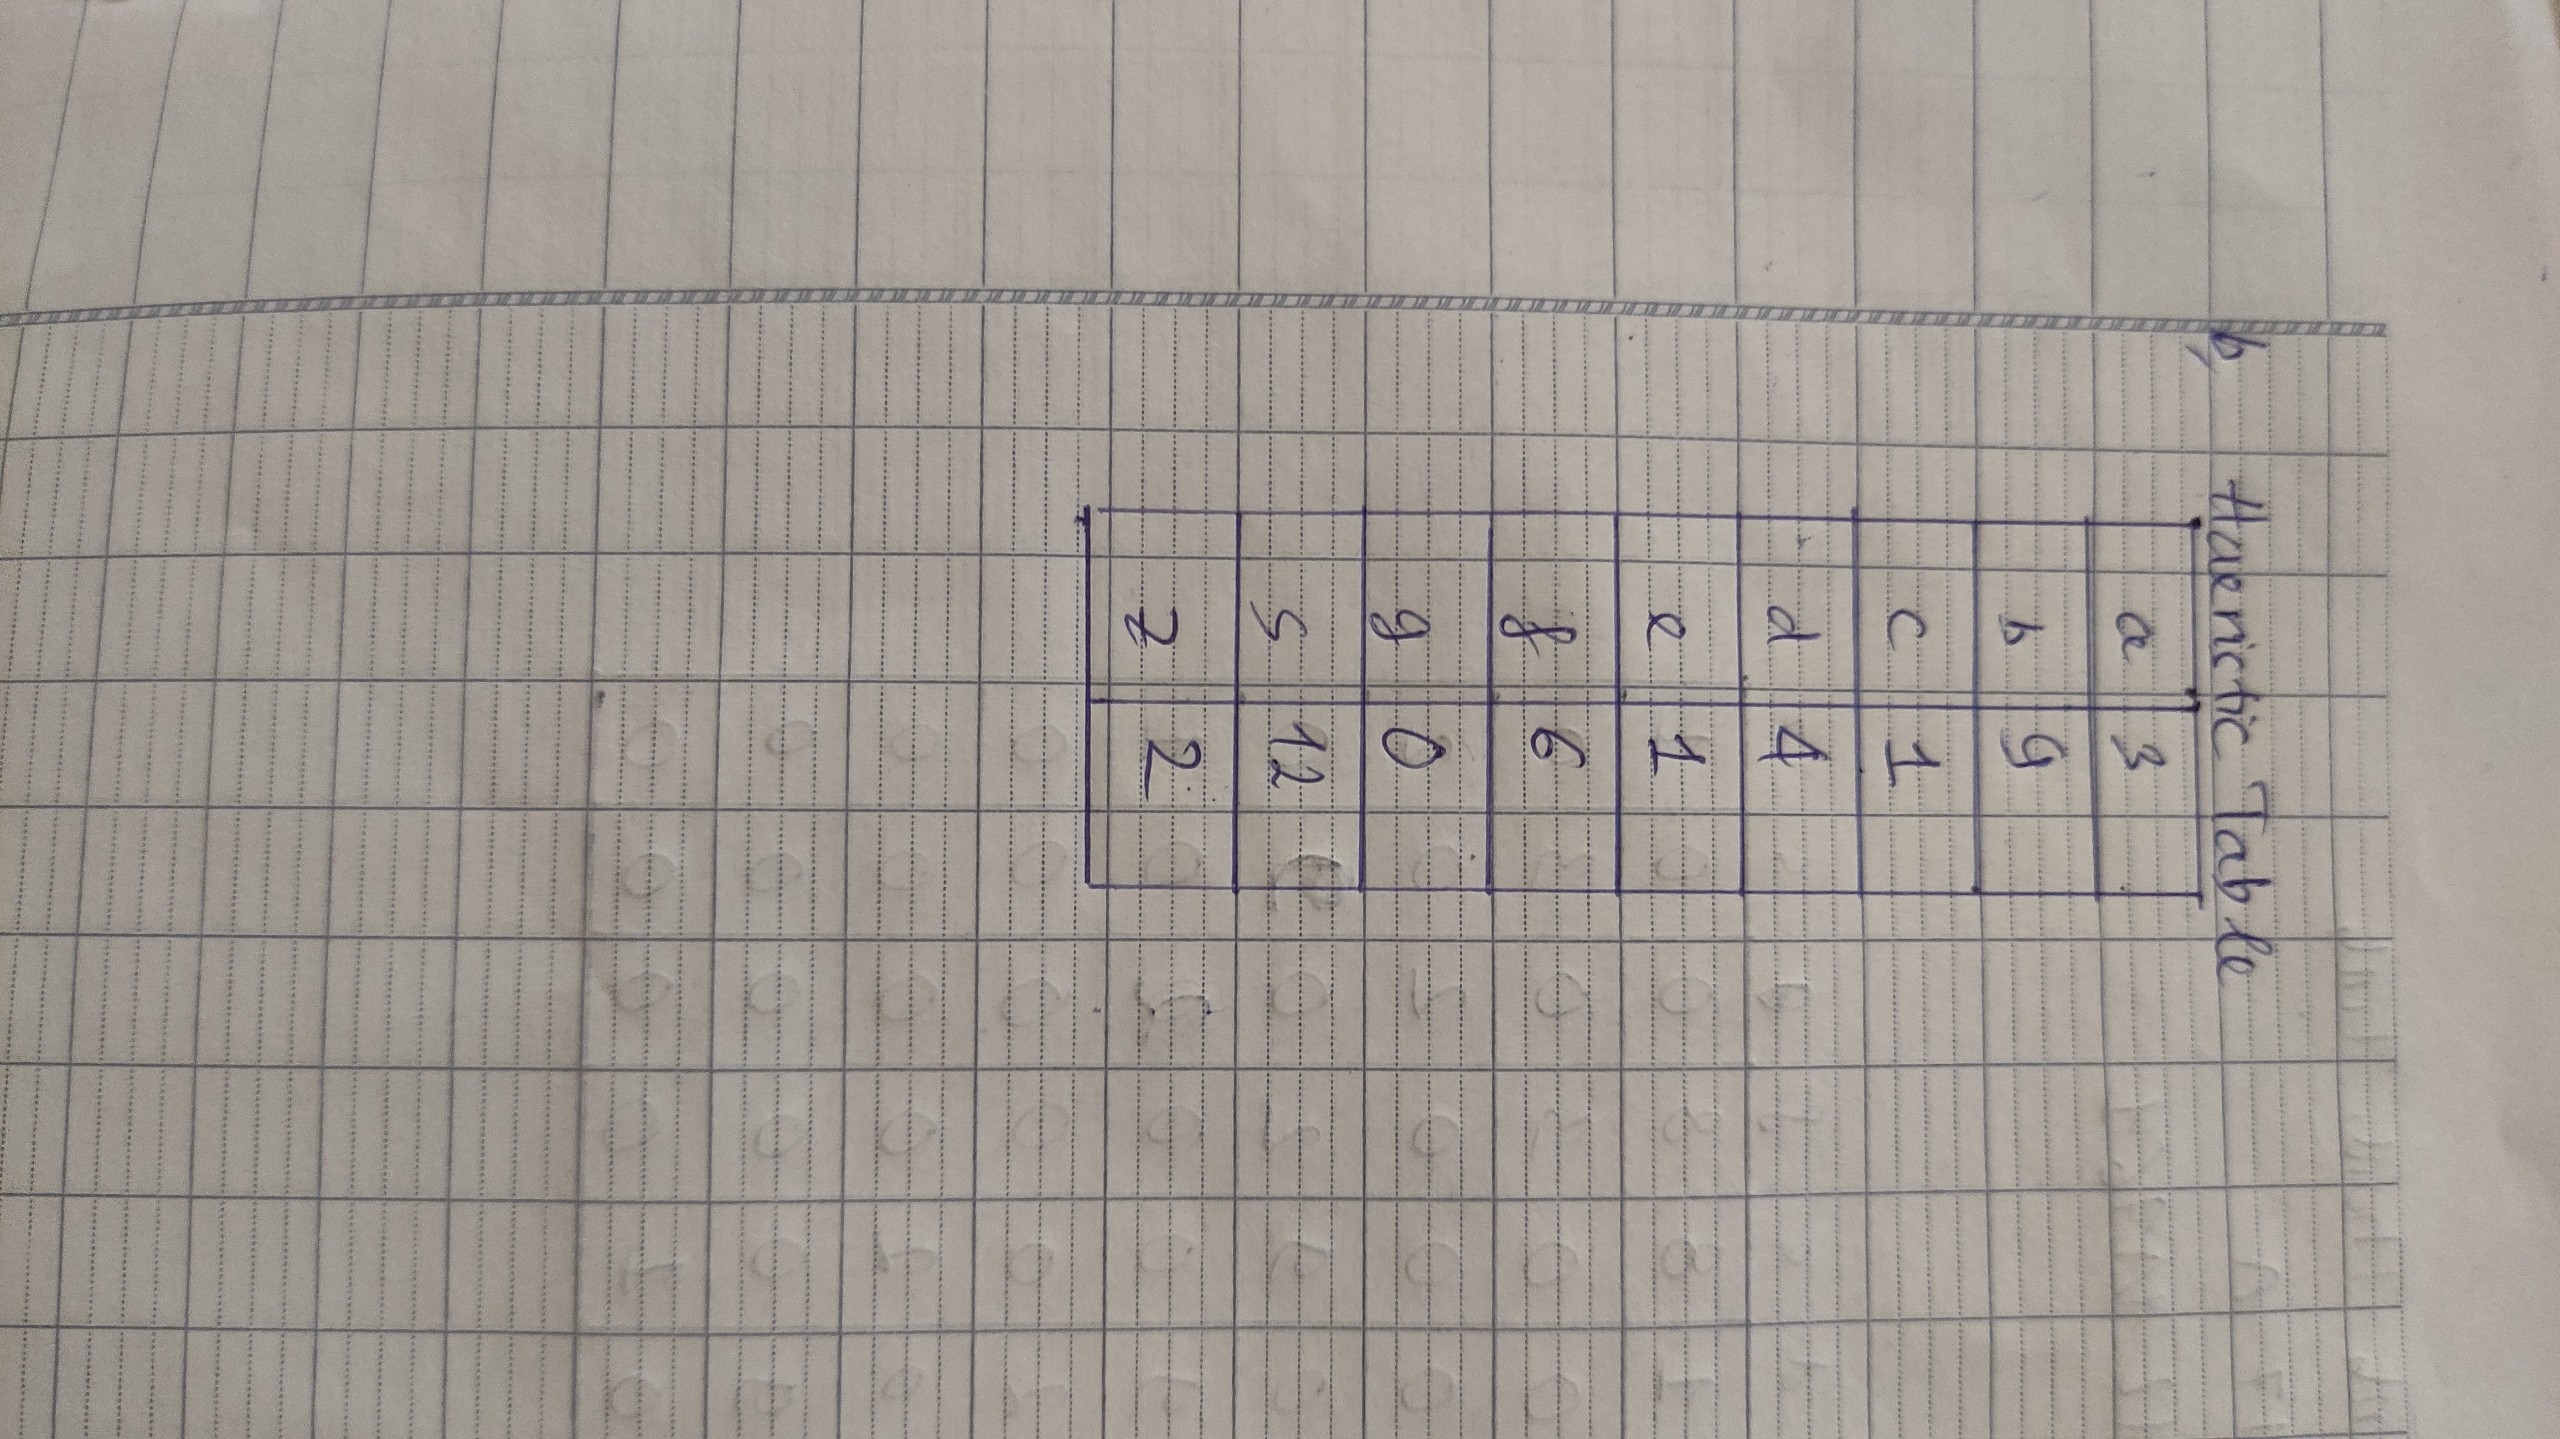 b, Huenictic Table
a 3
b 9
c 1
d 4
e 1
f 6
g 0
S 12
Z 2